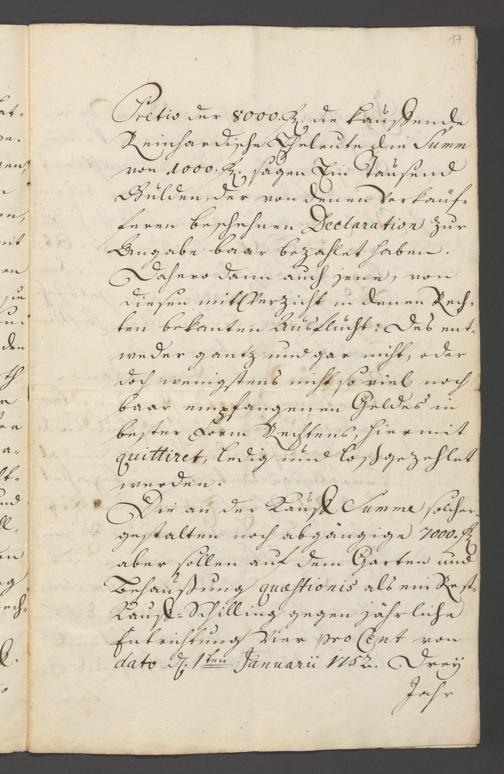 17
Pretio der 8000. fl. die kauffende
Reinhardische Eheleute die Summ
von 1000. fl. sagen Ein Tausend
Gulden, der von denen Verkäuf-
feren beschehenen Declaration zur
Angabe baar bezahlet haben.
Dahero dann auch jene, von
diesen mit Verzicht in denen Rech-
ten bekanten Ausflücht: des ent-
weder gantz und gar nicht, oder
doch wenigstens nicht so viel noch
baar empfangenen Geldes in
bester Form Rechtens, hiermit
quittiret, ledig und loßgezehlet
werden.
Die an der Kauff Summe solcher-
gestalten noch abgängige 7000. fl.
aber sollen auf dem Garten und
Behaußung quæstionis als ein Rest
Kauff-Schilling gegen jährliche
Entrichtung Vier pro Cent von
dato d. 1ten Januarii 1752. Drey
Jahr